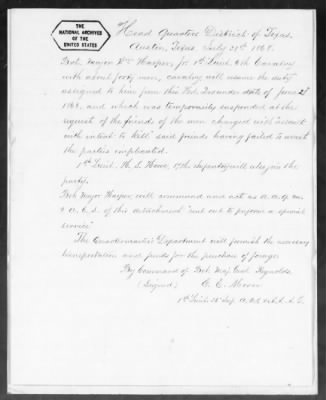 THE
NATIONAL ARCHIVES
OF THE
UNITED STATES
Head Quarters District of Texas,
Austin, Texas, July 29th 1868.
Bvt. Major Wm Harper, Jr. 1st Lieut. 6th Cavalry
with about forty men, cavalry will resume the duty
assigned to him from this Hd. Qrs. under date of June 25
1868, and which was temporarily suspended at the
request of the friends of the men charged with "assault
with intent to kill" said friends having failed to arrest
the parties implicated.
1st Lieut. H. S. Howe, 17th Infantry will also join the
party.
Bvt. Major Harper, will command and act as A. A. Q. M.
& A. C. S. of this detachment "sent out to perform a special
service"
The Quartermaster's Department will furnish the necessary
transportation and funds for the purchase of forage.
By Command of Bvt. Maj. Genl. Reynolds.
(Signed) C. E. Morse
1st Lieut. 26" Inf.